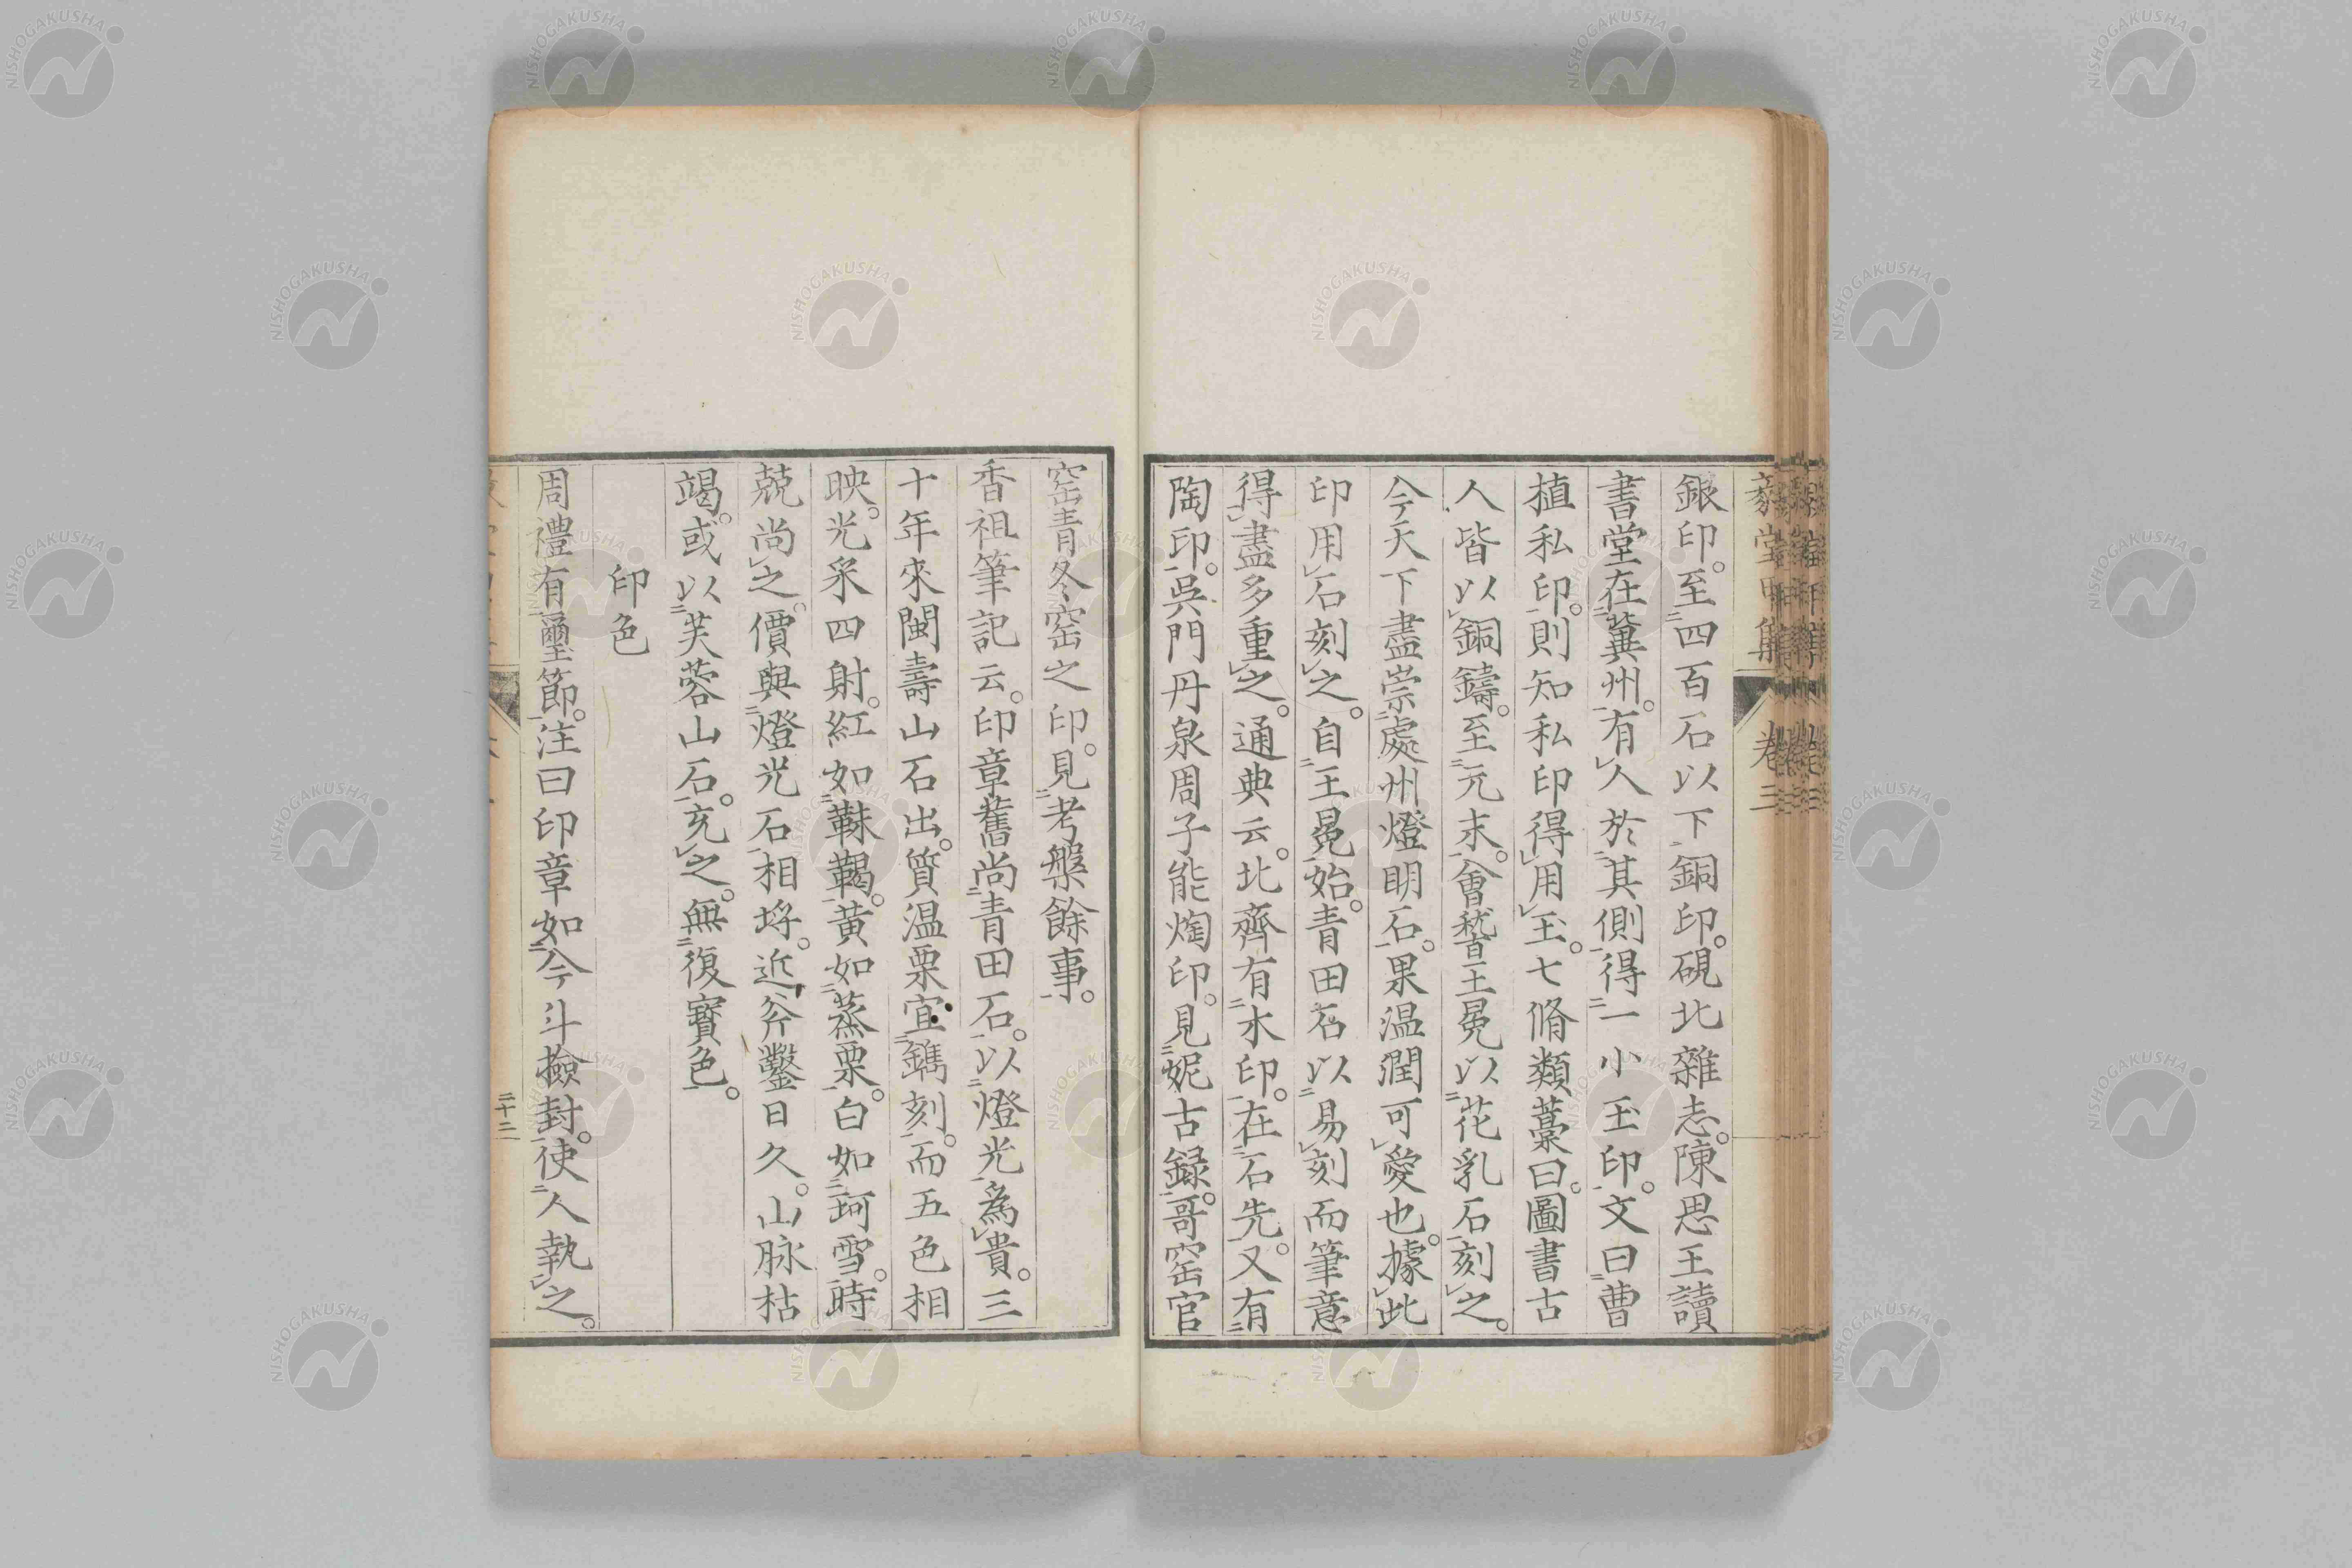 銀印。至四百石以下銅印。硯北雜志。陳思王讀
書堂在冀州。有人於其側得一小玉印。文曰曹
植私印。則知私印得用玉。七脩類藁曰。圖書古
人皆以銅鑄。至元末。會稽王冕以花乳石刻之。
今天下盡崇處州燈明石。果温潤可愛也。據此
印用石刻之。自王冕始。青田石以易刻而筆意
得盡多重之。通典云。北齊有木印。在石先。又有
陶印。吳門丹泉周子能燶印。見妮古録。哥窑官
窑青冬窑之印。見考槃餘事。
香祖筆記云。印章舊尚青田石。以燈光為貴。三
十年來閩壽山石出。質温栗宜鐫刻。而五色相
映。光采四射。紅如靺鞨。黄如蒸栗。白如珂雪。時
兢尚之。價與燈光石相埒。近斧鑿日久。山脉枯
竭。或以芙蓉山石。充之。無復寶色。
印色
周禮有璽節。注曰印章如今斗撿封。使人執之。
卷三
二十二
NISHOGAKUSHA